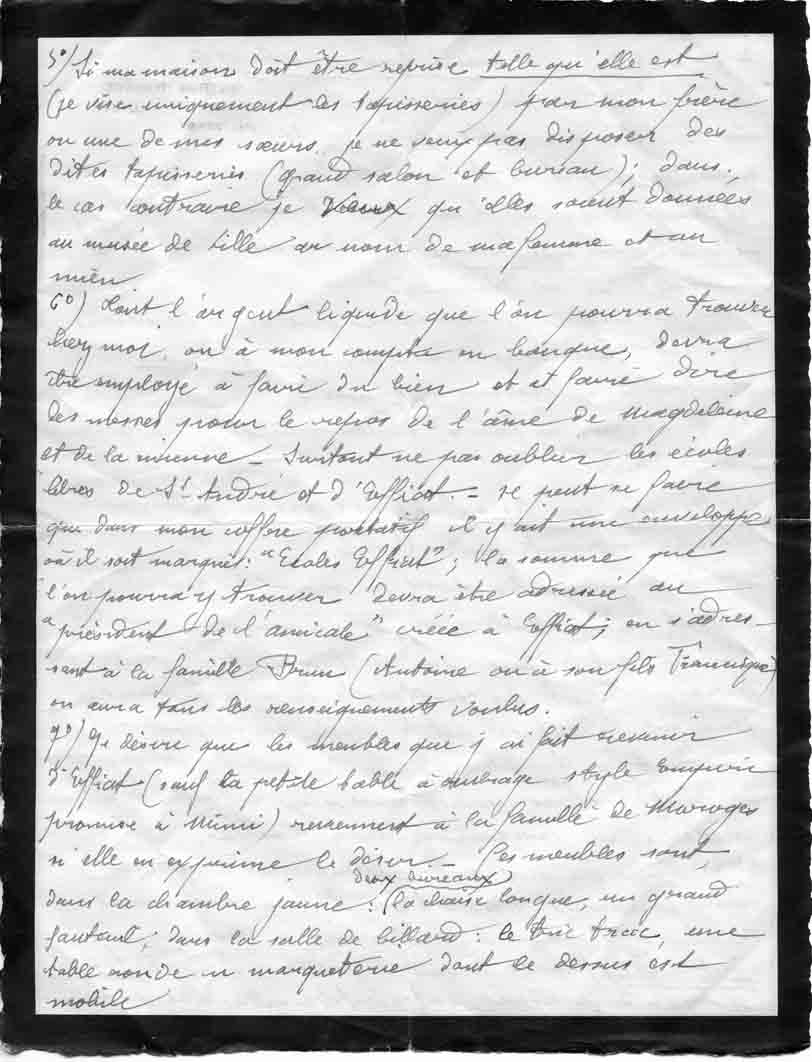 5°/ Si ma maison doit être reprise telle qu'elle est
(je vise uniquement les tapisseries) par mon frère
ou une de mes sœurs je ne veux pas disposer des
dites tapisseries (grand salon et bureau); dans
le cas contraire je veux qu'elles soient données
au musée de Lille au nom de ma femme et au
mien
6°) Tout l'argent liquide que l'on pourra trouver
chez moi, ou à mon compte en banque, devra
être employé à faire du bien et à faire dire
des messes pour le repos de l'âme de Magdeleine
et de la mienne – Surtout ne pas oublier les écoles
libres de St André et d'Effiat. – Il peut se faire
que dans mon coffre portatif il y ait une enveloppe
où il soit marqué: "Ecoles Effiat"; la somme que
l'on pourra y trouver devra être adressée au
"président de l'amicale" créée à Effiat; en s'adres-
sant à la famille Brun (Antoine ou à son fils Francisque)
on aura tous les renseignements voulus.
7°) Je désire que les meubles que j'ai fait revenir
d'Effiat (sauf la petite table à ouvrage style Empire
promise à Mimi) reviennent à la famille de Maroges
si elle en exprime le désir. – Ces meubles sont,
deux bureaux
dans la chambre jaune: (la chaise longue, un grand
fauteuil; dans la salle de billard: le tric trac, une
table ronde en marqueterie dont le dessus est
mobile